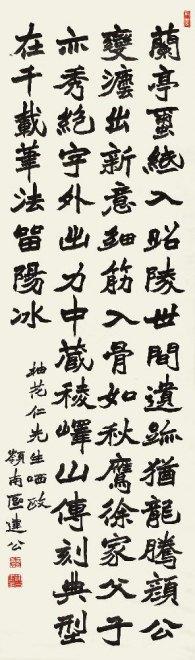 蘭亭蠒紙入昭陵世間遺跡猶龍騰顏公
變灋出新意細筋入骨如秋鷹徐家父子
亦秀絕字外出力中藏稜嶧山傳刻典型
在千載筆法留陽冰
柚范仁先生哂政
嶺南區建公